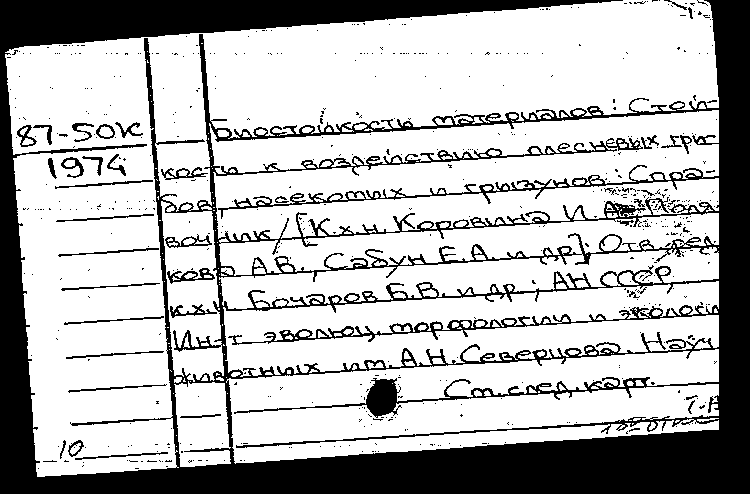 87-50К
1974
Биостойкость материалов: Стой-
кость к воздействию плесневых гри-
бов, насекомых и грызунов: Спра-
вочник / [К.х.н. Коровина И. Поля-
кова А.В., Сабун Е.А. и др]; Отв. ред.
к.х.н Бочаров Б.В. и др; АН СССР,
Ин-т эволюц. морфологии и экологии
животных им. А.Н. Северцова. Науч
См. след. карт.
10